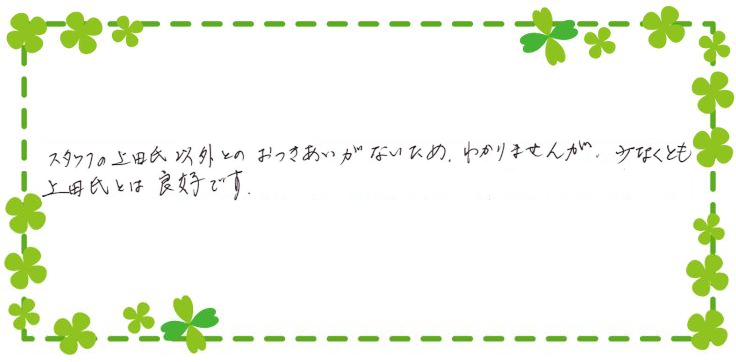 スタッフの上田氏以外とのおつきあいがないため、わかりませんが、少なくとも
上田氏とは良好です。